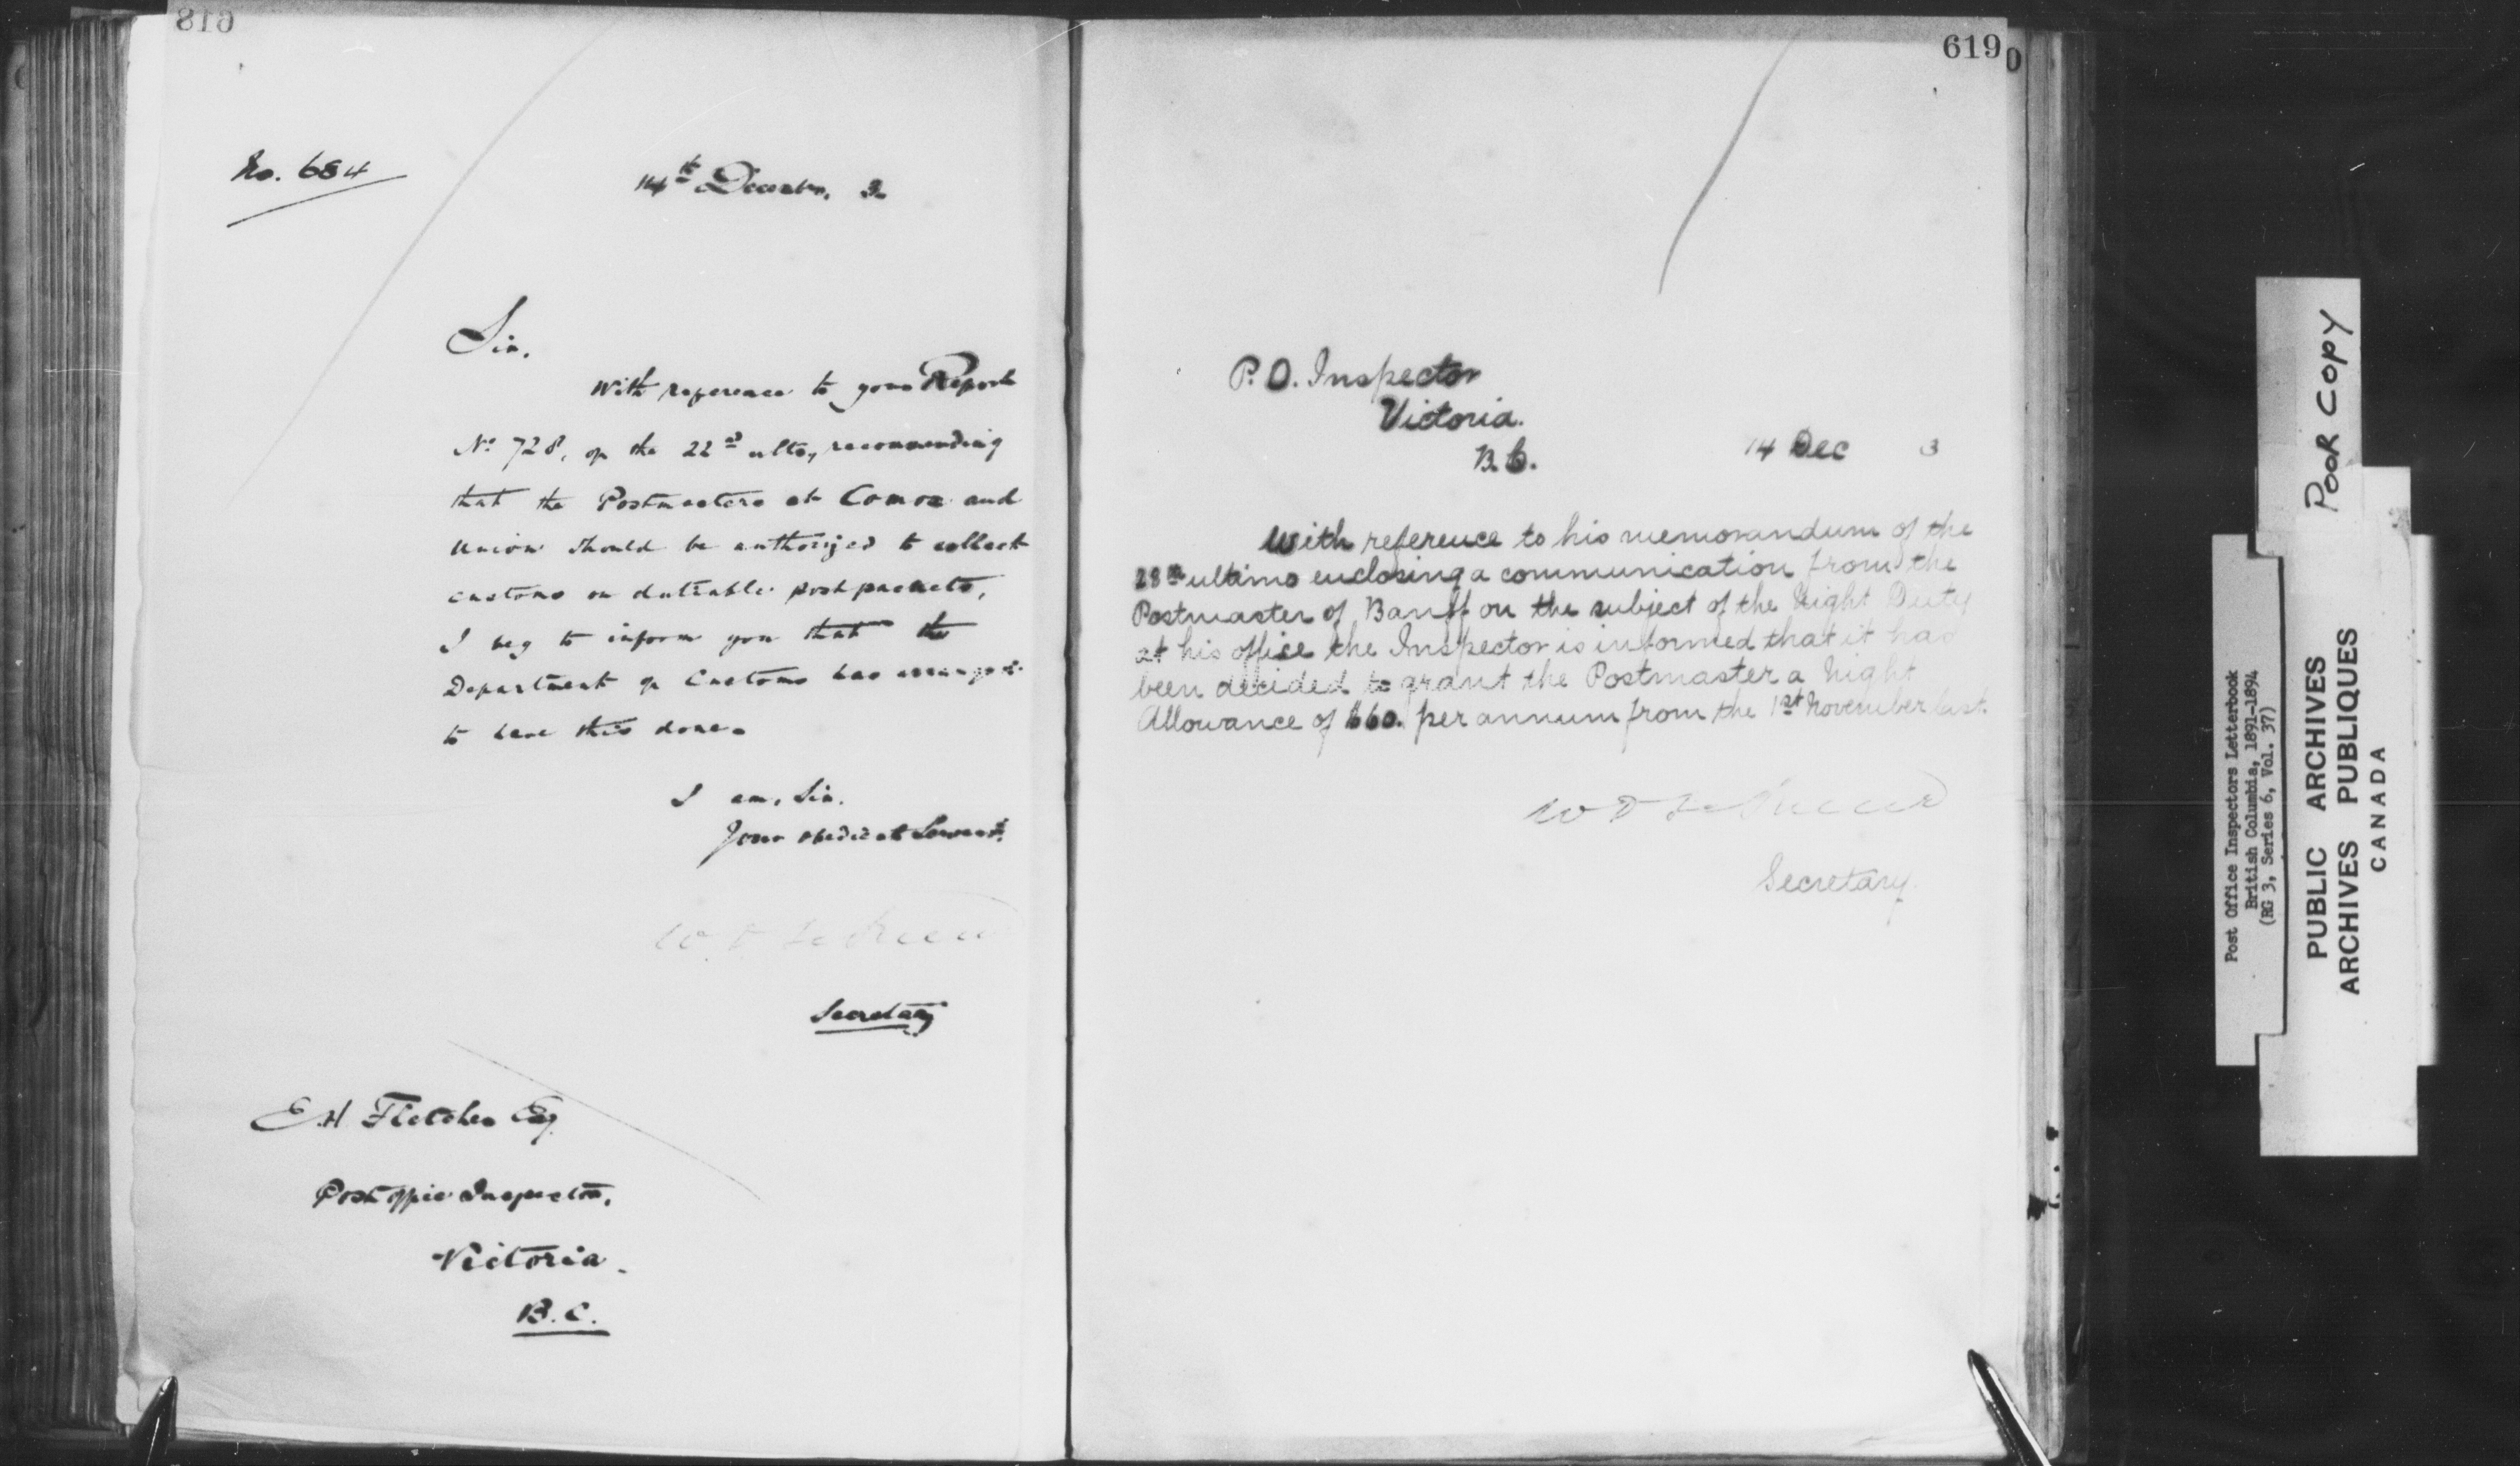 618
No. 684
14th December, 3
Sir,
With reference to your Report
No 728, of the 22nd ulto, recommending
that the Postmasters at Comox and
Union should be authorized to collect
customs on dutiable post packets,
I beg to inform you that the
Department of Customs has arranged
to have this done.
I am, Sir,
Your obedient Servant.
Secretary
E H Fletcher Esq
Post Office Inspector,
Victoria
B.C.
619
P.O. Inspector
Victoria.
B.C.
14 Dec 3
With reference to his memorandum of the
28th ultimo enclosing a communication from the
Postmaster of Banff on the subject of the Night Duty
at his office the Inspector is informed that it has
been decided to grant the Postmaster a Night
Allowance of $60. per annum from the 1st November last.
Secretary
POOR COPY
Post Office Inspectors Letterbook
British Columbia, 1891-1894
(RG 3, Series 6, Vol. 37)
PUBLIC ARCHIVES
ARCHIVES PUBLIQUES
CANADA